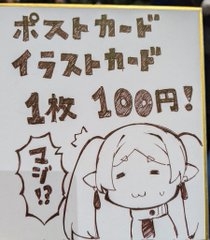 ポストカード
イラストカード
1枚 100円!
マジ!?